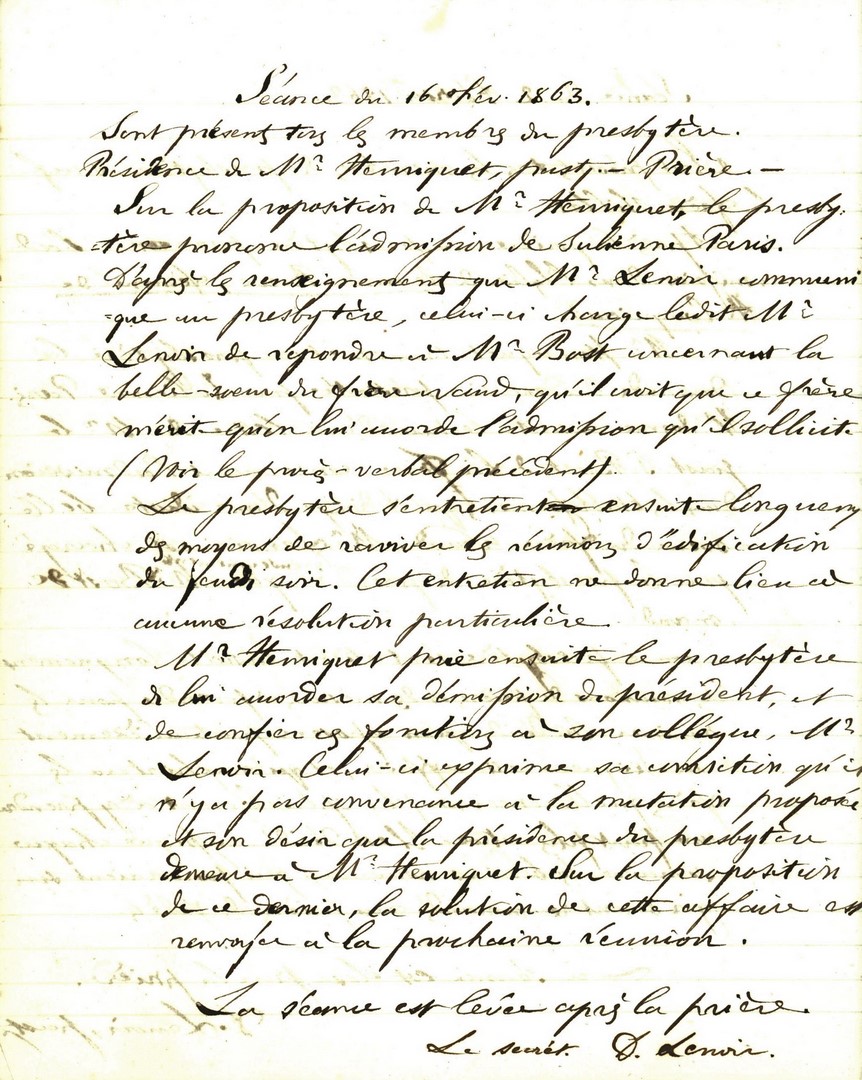 Séance du 16 Fév. 1863.
Sont présents tous les membres du presbytère.
Présidence de Mr. Henriquet, past. – Prière. –
Sur la proposition de Mr. Henriquet, le presby-
-tère prononce l'admission de Julienne Paris.
D'après les renseignements que Mr. Lenoir communi
-que au presbytère, celui-ci charge ledit Mr.
Lenoir de répondre à Mr. Bost concernant la
belle-soeur du frère , qu'il croit que ce frère
mérite qu'on lui accorde l'admission qu'il sollicite
(Voir le procès-verbal précédent).
Le presbytère s'entretient ensuite longuem
des moyens de raviver les réunions d'édification
du jeudi soir. Cet entretien ne donne lieu à
aucune résolution particulière.
Mr. Henriquet prie ensuite le presbytère
de lui accorder sa démission de président, et
de confier ces fonctions à son collègue, Mr.
Lenoir. Celui-ci exprime sa conviction qu'il
n'y a pas convenance à la mutation proposée
et son désir que la présidence du presbytère
demeure à Mr. Henriquet. Sur la proposition
de ce dernier, la solution de cette affaire est
renvoyée à la prochaine réunion.
La séance est levée après la prière.
Le secrét. D. Lenoir.